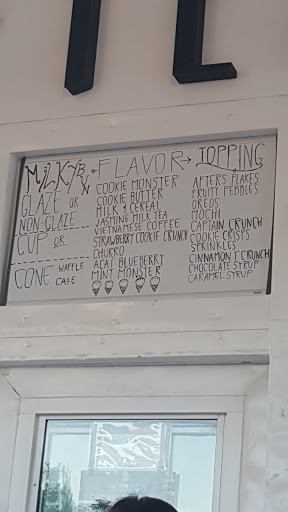 MILKYBUN
GLAZE OR
NON-GLAZE
CUP OR
CONE WAFFLE
CAKE
FLAVOR →
COOKIE MONSTER
COOKIE BUTTER
MILK & CEREAL
JASMINE MILK TEA
VIETNAMESE COFFEE
STRAWBERRY COOKIE CRUNCH
CHURRO
ACAI BLUEBERRY
MINT MONSTER
TOPPING
AFTERS FLAKES
FRUITY PEBBLES
OREOS
MOCHI
CAPTAIN CRUNCH
COOKIE CRISPS
SPRINKLES
CINNAMON T CRUNCH
CHOCOLATE SYRUP
CARAMEL SYRUP